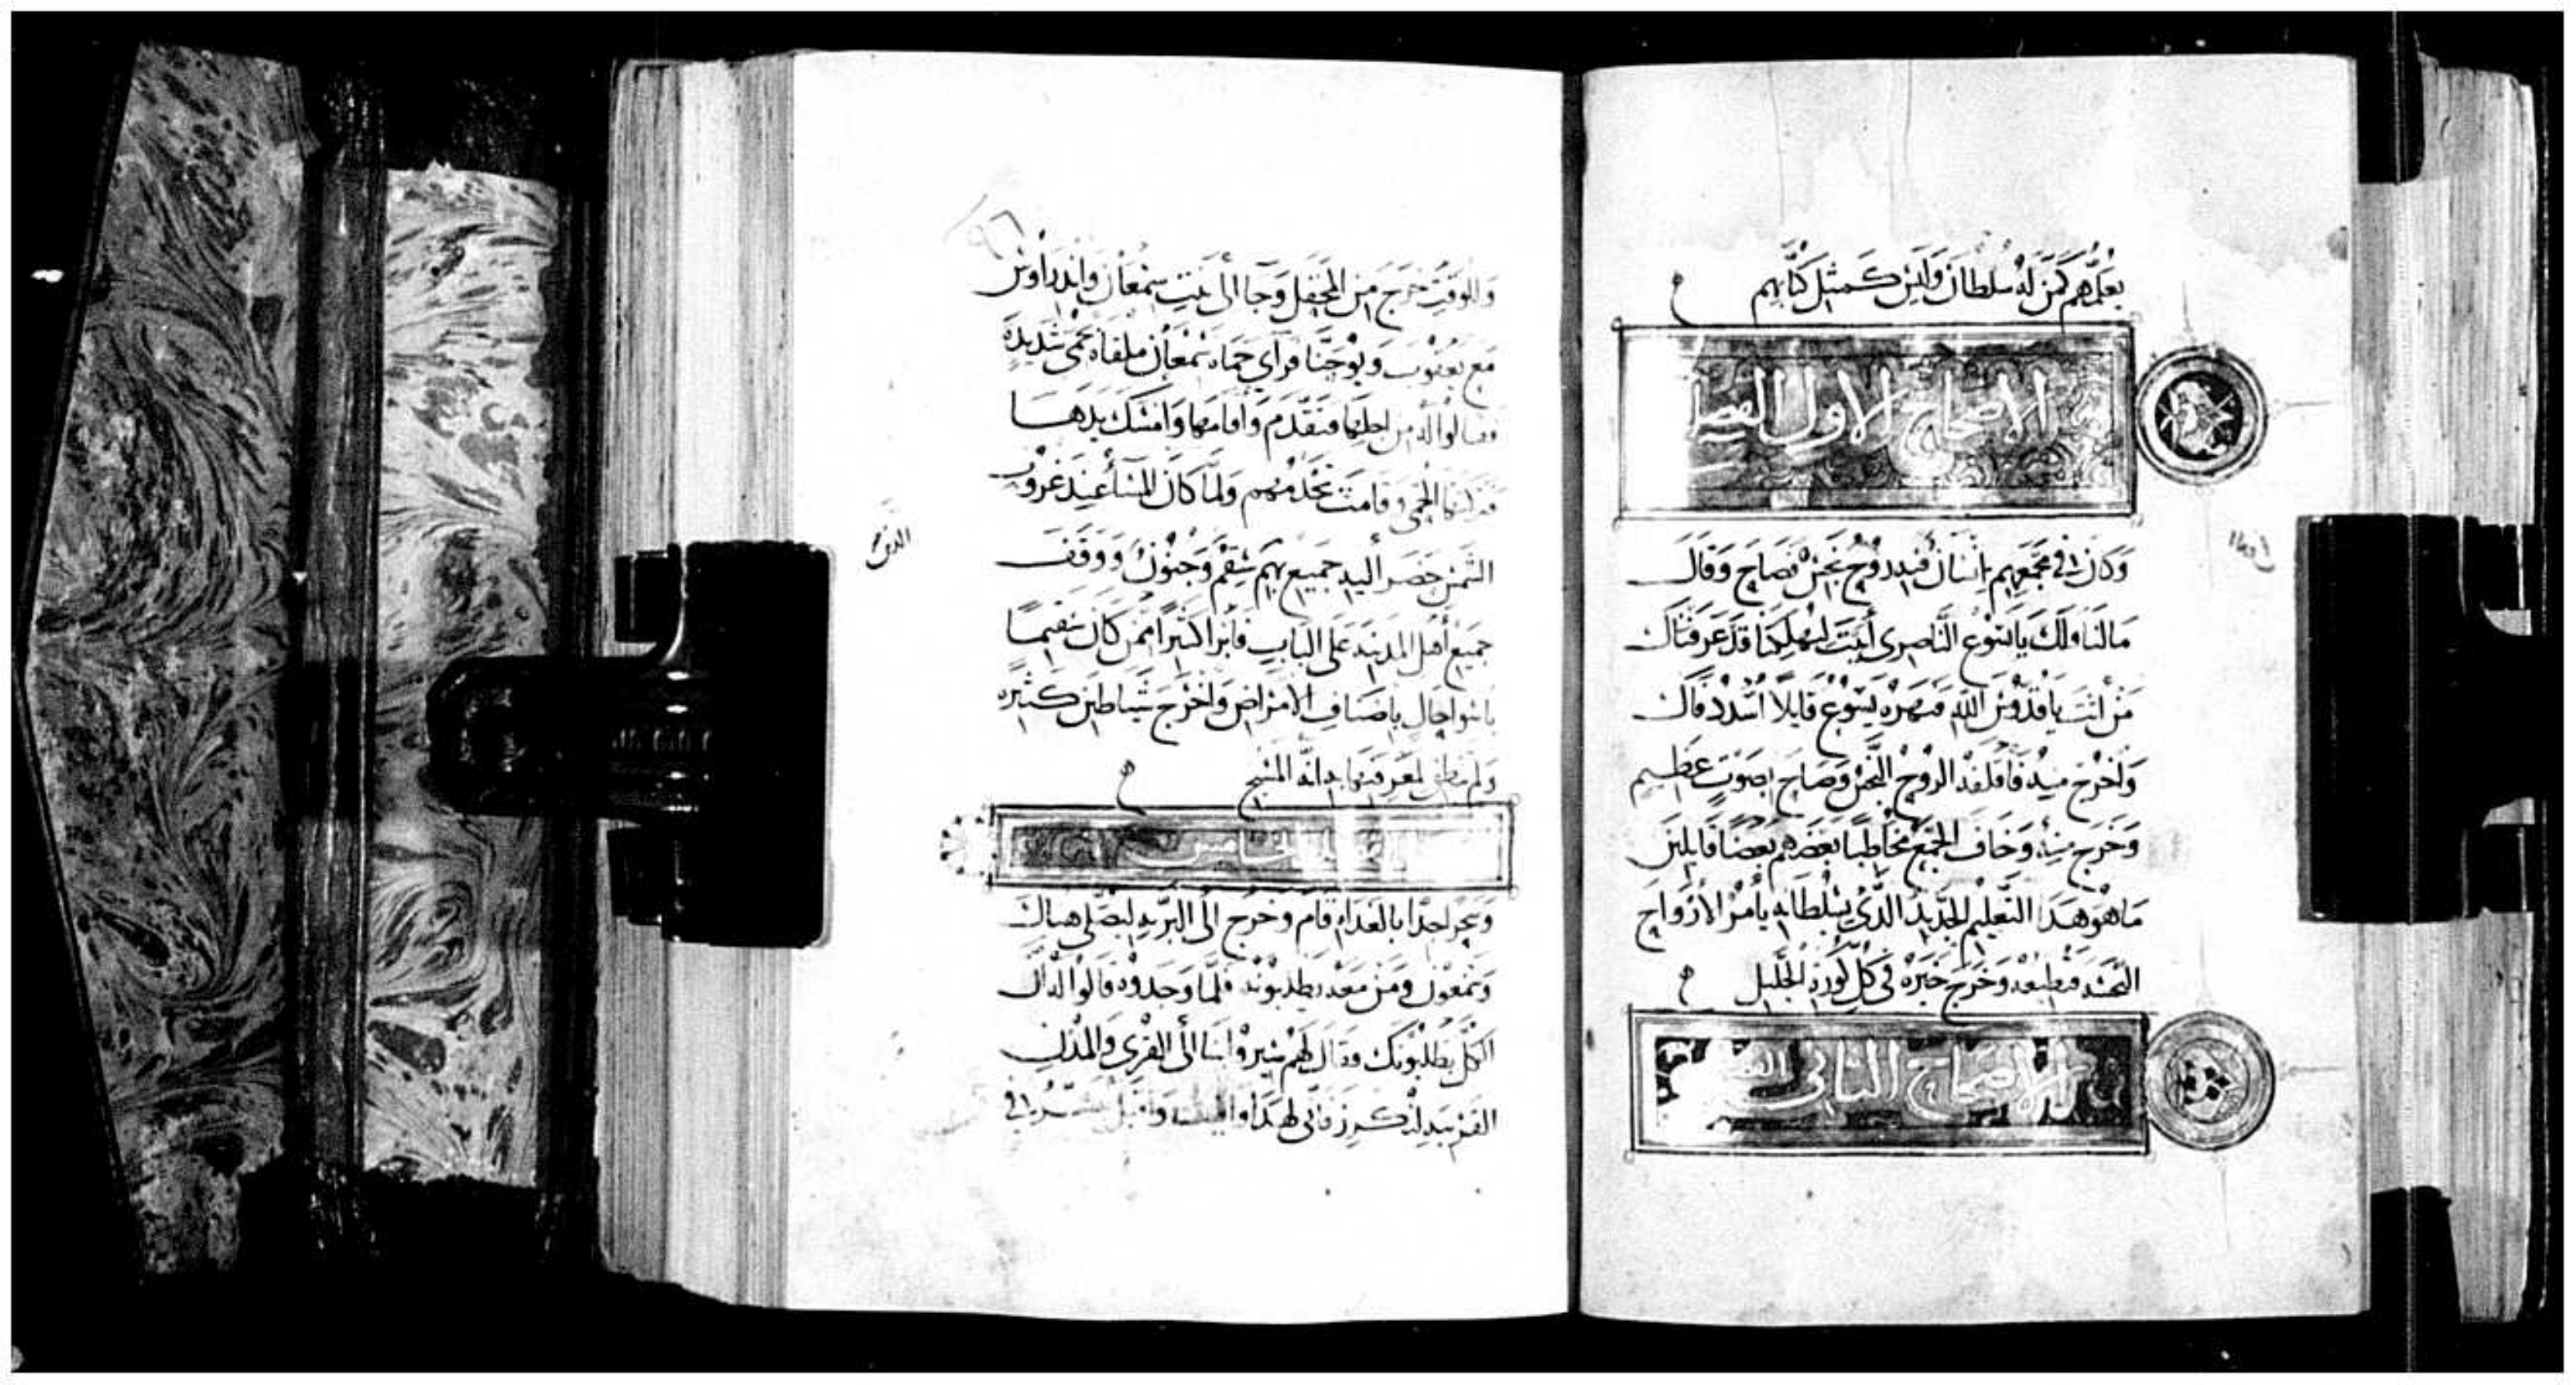 يعلمهم كمن له سلطان وليس كمثل كتابهم
الاصحاح الاول
وكان في مجمعهم انسان فيه روح نجس فصاح وقال
مالنا ولك يايسوع الناصري أتيت لتهلكنا قد عرفناك
من انت ياقدوس الله فنهره يسوع قايلا اسدد فاك
واخرج منه فاقلقه الروح النجس وصاح بصوت عظيم
وخرج منه وخاف الجمع مخاطبا بعضهم بعضا قايلين
ماهو هذا التعليم الجديد الذي بسلطانه يأمر الأرواح
النجسه فتطيعه وخرج خبره في كل كورة الجليل
الاصحاح الثاني
وللوقت خرج من المحفل وجا الى بيت سمعان واندراوس
مع يعقوب ويوحنا فرأي حماة سمعان ملقاه بحمى شديده
فقالوا له من اجلها فتقدم وأقامها وامسك يدها
فتركتها الحمى وقامت تخدمهم ولما كان المسا عند غروب
الشمس حضر أليه جميع بهم سقم وجنون ووقف
الذين
جميع أهل المدينه على الباب فابرا كثيرا ممن كان سقيما
باسوا حال باصناف الامراض واخرج شياطين كثيره
ولم ينطق لمعرفتها به انه المسيح
الخامس
وسحرا جدا بالغداه قام وخرج الى البريه ليصلي هناك
وسمعون ومن معه يطلبونه فلما وجدوه قالوا له ان
الكل يطلبونك فقال لهم سيروا بنا الى القرى والمدن
القريبه لنكرز فاني لهذا وافيت واقبل يبشر في